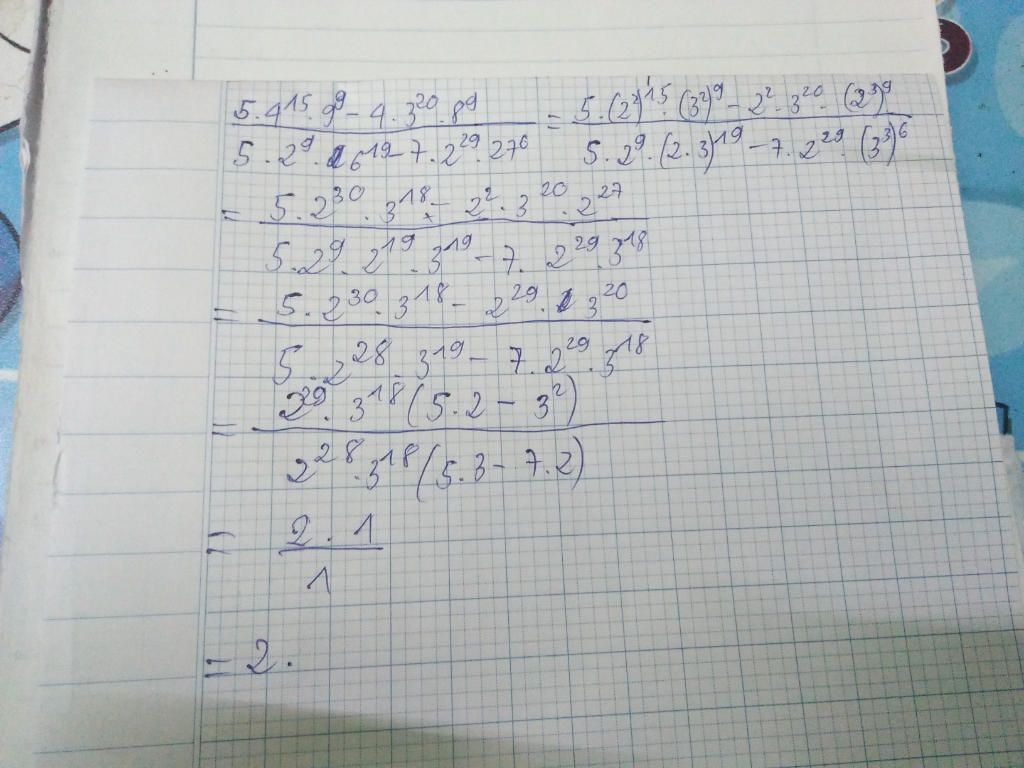 5.4¹⁵.9⁹ - 4.3²⁰.8⁹ / 5.2⁹.6¹⁹ - 7.2²⁹.27⁶ = 5.(2²)¹⁵.(3²)⁹ - 2².3²⁰.(2³)⁹ / 5.2⁹.(2.3)¹⁹ - 7.2²⁹.(3³)⁶
= 5.2³⁰.3¹⁸ - 2².3²⁰.2²⁷ / 5.2⁹.2¹⁹.3¹⁹ - 7.2²⁹.3¹⁸
= 5.2³⁰.3¹⁸ - 2²⁹.3²⁰ / 5.2²⁸.3¹⁹ - 7.2²⁹.3¹⁸
= 2²⁹.3¹⁸(5.2 - 3²) / 2²⁸.3¹⁸(5.3 - 7.2)
= 2.1 / 1
= 2.